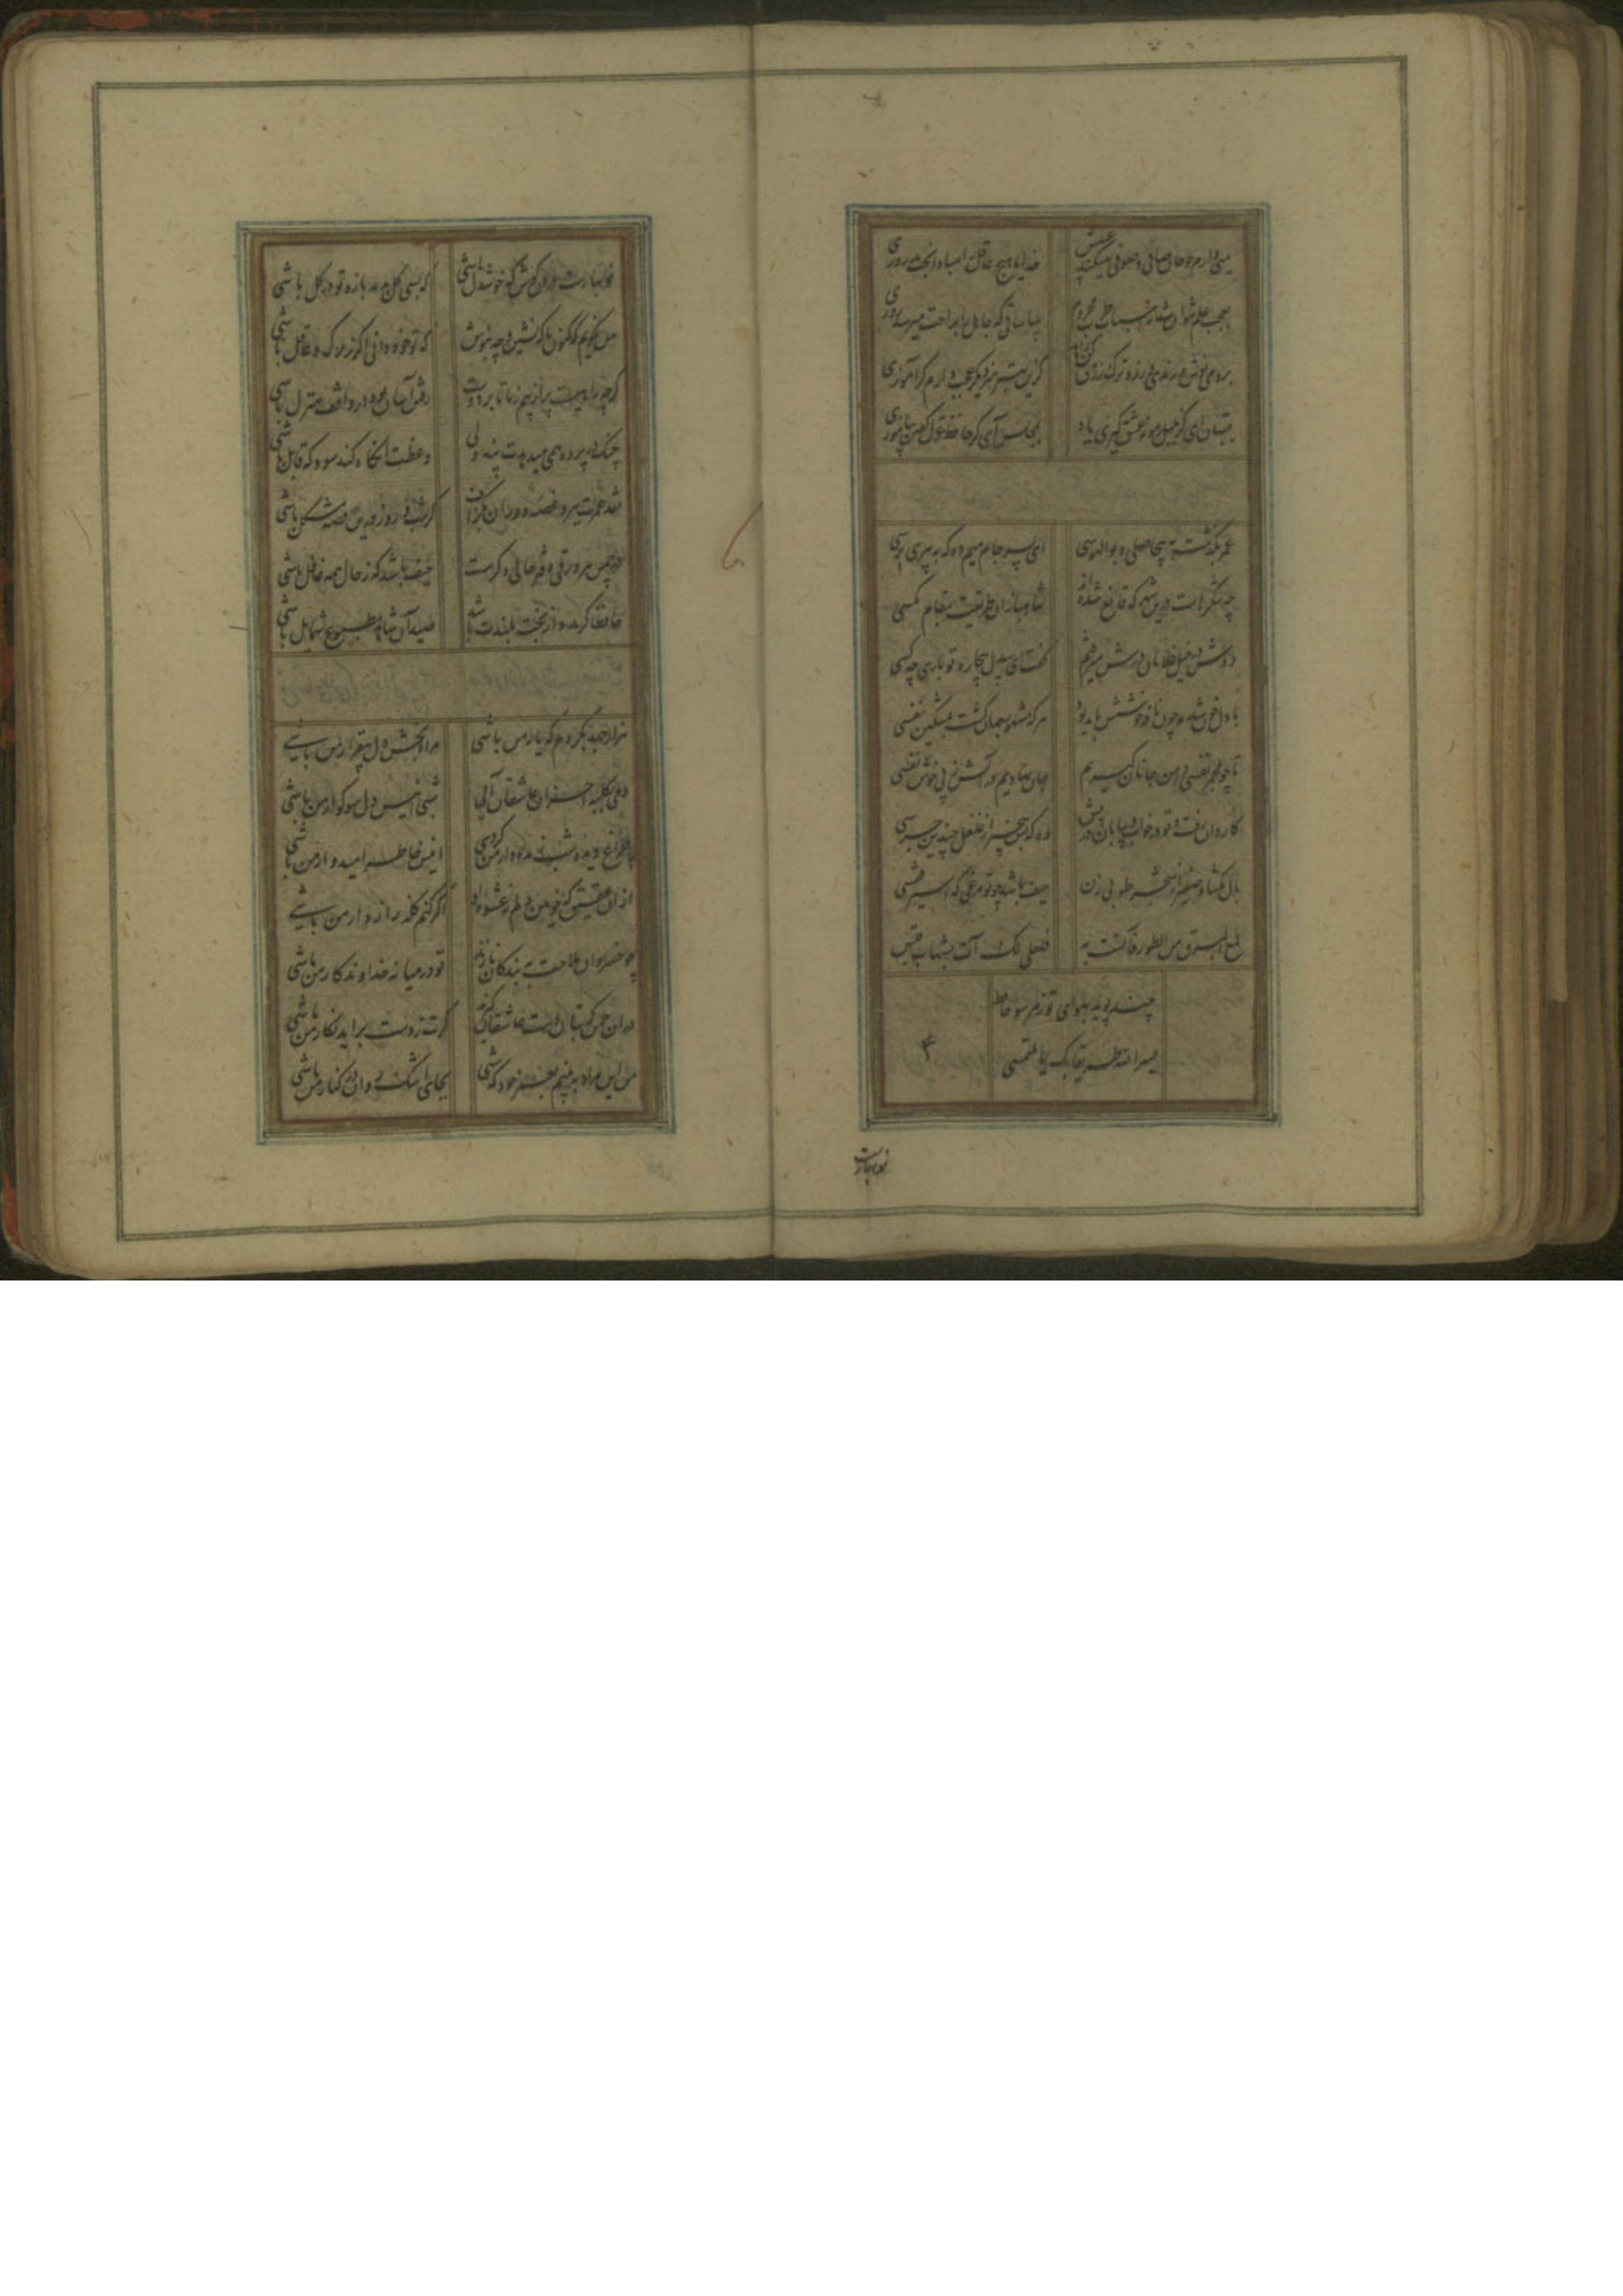 می دارم چو جان صافی و صوفی میکند عیبش خدایا هیچ عاقل را مبادا بخت بد روزی
بعجب علم نتوان شد ز اسباب طرب محروم بیا ساقی که جاهل را براحت میرسد روزی
برو می نوش و رندی ورز و ترک زرق کن زاهد کزین بهتر هنر دیگر عجب دارم گر آموزی
ببستان آی کز بلبل رموز عشق گیری یاد بمجلس آی کز حافظ غزل گفتن بیاموزی
عمر بگذشت به بیحاصلی و بوالهوسی ای پسر جام میم ده که به پیری برسی
چه شکرهاست درین شهر که قانع شده‌اند شاهبازان طریقت بمقام مگسی
دوش در خیل غلامان درش میرفتم گفت ای بیدل بیچاره تو باری چه کسی
با دل خون شده چون نافه خوشش باید بود هر که مشهور جهان گشت بمشکین نفسی
تا چو مجمر نفسی دامن جانان گیریم جان نهادیم بر آتش ز پی خوش نفسی
کاروان رفت و تو در خواب و بیابان در پیش وه که بس بیخبر از غلغل چندین جرسی
بال بگشا و صفیر از شجر طوبی زن حیف باشد چو تو مرغی که اسیر قفسی
لمع البرق من الطور فآنست به فلعلی لک آت بشهاب قبس
چند پوید بهوای تو ز هر سو حافظ
یسر الله طریقا بک یا ملتمسی
۴
نوبهارست
نوبهارست در آن کوش که خوشدل باشی که بسی گل بدمد باز و تو در گل باشی
من نگویم که کنون با که نشین و چه بنوش که تو خود دانی اگر زیرک و عاقل باشی
گرچه راهیست پر از بیم ز ما تا بر دوست رفتن آسان بود ار واقف منزل باشی
چنگ در پرده همی میدهدت پند ولی وعظت آنگاه کند سود که قابل باشی
نقد عمرت ببرد غصه دوران بگزاف گر شب و روز درین قصه مشکل باشی
در چمن هر ورقی دفتر حالی دگرست حیف باشد که ز حال همه غافل باشی
حافظا گر مدد از بخت بلندت باشد صید آن شاهد مطبوع شمایل باشی
هزار جهد بکردم که یار من باشی مراد بخش دل بیقرار من باشی
دمی بکلبه احزان عاشقان آئی شبی انیس دل سوکوار من باشی
چراغ دیده شب زنده دار من گردی انیس خاطر امیدوار من باشی
از آن عقیق که خونین دلم ز عشوه او اگر کنم گله راز دار من باشی
چو خسروان ملاحت به بندگان نازند تو در میانه خداوندگار من باشی
در آن چمن که بتان دست عاشقان گیرند گرت ز دست براید نگار من باشی
من این مراد ببینم بخود که شبی بجای اشک روان در کنار من باشی